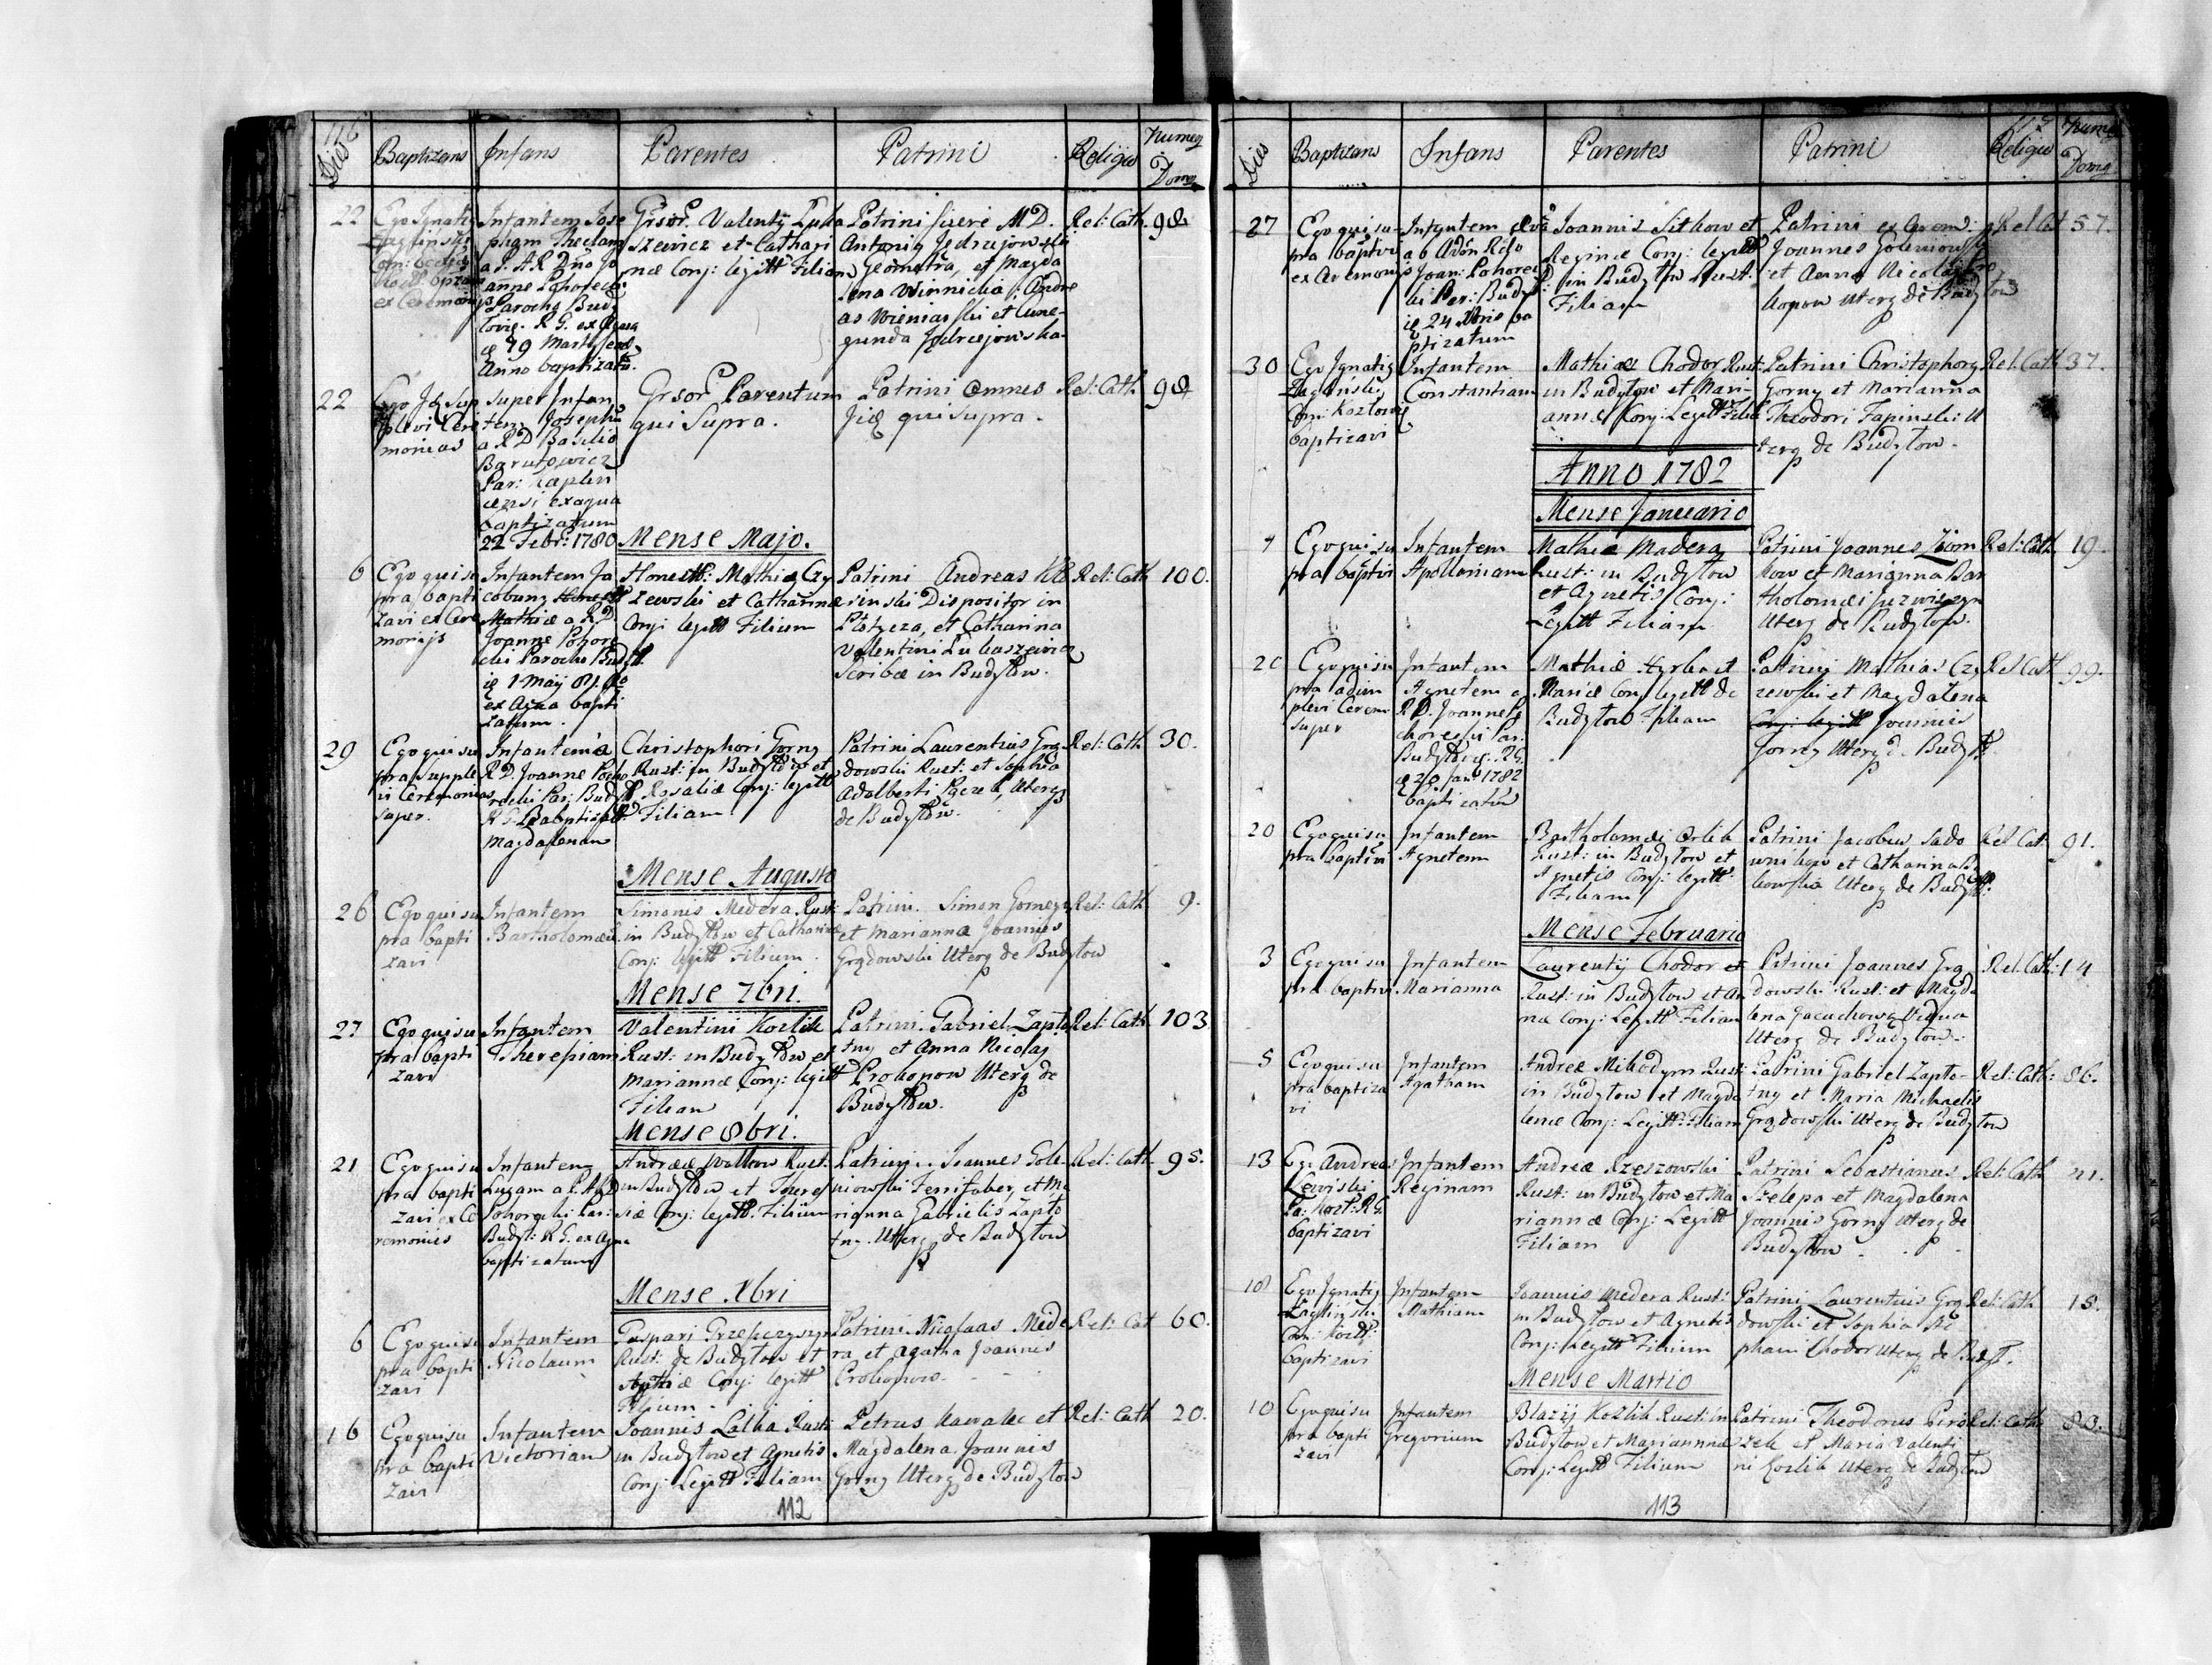 116
Dies Baptizans Infans Parentes Patrini Religio Numeg Domg
22 Ego Ignatig
ex Ceremonijs
Infantem Jose
pham Theclam
a P. A R Dno Jo
anne Pohorecki
Parocho Budy
lovie. R G. ex Aqua
Anno baptizatu.
Grsor. Valentÿ Luka
szewicz et Cathari
næ Conj: legitt Filiam
Patrini fuere M D.
Antonig Jędrzejowski
Geometra, et Magda
lena Winnicka, Andre
as Wieniawski et Cune-
gunda Jędrzejowska
Rel: Cath. 98
22 Ego Id sup
plevi Cere
monias
super Infan
tem Josephu
a R D Basilio
Par:
ex aqua
baptizatum
22 Febr: 1780
Grsor Parentum
qui Supra.
Patrini omnes
Jid qui supra.
Rel: Cath 98
Mense Majo.
6 Ego qui su
pra bapti
zavi ex Cere
monijs
Infantem Ja
cobum
Mathiæ a R D
Joanne Pohore
cki Parocho Budył.
1 Maij
ex Aqua bapti
zatum.
Honestt: Mathiæ Czy
zewski et Catharinæ
Conj: legitt Filium
Patrini Andreas
Dispositor in
et Catharina
Valentini Lukaszewicz
Scribæ in Budyłow.
Rel: Cath 100.
29 Ego qui su
pra supple
vi Ceremonias
super.
Infantem a
R D. Joanne Poho
recki Par: Budył
R G. Babtizatt
Magdalenam
Christophori Gorny
Rust: in Budyłow et
Rosaliæ Conj: legitt
Filiam
Patrini Laurentius Grą
dowski Rust: et Sophia
Adalberti Uterq
de Budyłow.
Rel: Cath 30.
Mense Augusto
26 Ego qui su
pra bapti
zavi
Infantem
Bartholomæū
Simonis Medera Rust:
in Budyłow et Catharinæ
Conj: legitt Filium.
Patrini. Simon
et Marianna Joannis
Grądowski Uterq de Budyłow
Rel: Cath 9.
Mense 7bri.
27 Ego qui su
pra bapti
zavi
Infantem
Theresiam
Valentini Kozlik
Rust: in Budyłow et
Mariannæ Conj: legitt
Filiam
Patrini. Gabriel Zapło
tny et Anna Nicolaj
Prokopow Uterq de
Budyłow.
Rel: Cath 103
Mense 8bri.
21 Ego qui su
pra bapti
zavi ex Ce
remonies
Infantem
Lucam a P. A R D
Pohorecki Par:
Budył: R G. ex Aqua
baptizatum
Andreæ Wołkow Rust:
in Budyłow et There
siæ Conj: legitt. Filium
Patrini: Joannes Gole
niowski Ferrifaber, et Ma
rianna Gabrielis Zapło
tny. Uterq de Budyłow
Rel: Cath. 95.
Mense Xbri
6 Ego qui su
pra bapti
zavi
Infantem
Nicolaum
Gaspari Grzeszczyszyn
Rust: de Budyłow et
Conj: legitt
Filium
Patrini. Nicolaus Mede
ra et Agatha Joannis
Prokopow
Rel: Cat 60.
16 Ego qui su
pra bapti
zavi
Infantem
Victoriam
Joannis Lalka Rust:
in Budyłow et Agnetis
Conj: Legitt Filiam
Petrus Kawalec et
Magdalena Joannis
Gorny Uterq de Budyłow
Rel: Cath 20.
112
Dies Baptizans Infans Parentes Patrini Religio Numeg Domg.
27 Ego qui su-
pra baptivi
ex Ceremonijs
Infantem
Joan: Pohorec
ki Par: Budył
24 Xbris ba
ptizatum
Joannis Sitkow et
Reginæ Conj: legitt
in Budyłow Rust.
Filiam
Patrini ex
Joannes Goleniowski
et Anna Nicolai Pro
kopow Uterq de Budyłow
Rel Cat 57.
30 Ego Ignatig
baptizavi
Infantem
Constantiam
Mathiæ Chodor Rust:
in Budyłow et Mari-
annæ Conj: Legitt Filia
Patrini Christophorg
Gorny et Marianna
Theodori Tapinski U
terq de Budyłow.
Rel. Cath 37.
Anno 1782
Mense Januario
Ego qui su
pra baptivi
Infantem
Apolloniam
Mathiæ Madera
Rust: in Budyłow
et Agnetis Conj:
Legitt Filiam
Patrini Joannes Ziom
kow et Marianna Bar
tholomæi
Uterq de Budyłow.
Rel: Cath 19.
20 Ego qui su
pra adim
plevi Cerem
super
Infantem
Agnetem a
R D. Joanne Po
horecki Par.
20 Jan: 1782
baptizatū
Mathiæ Hyrba et
Mariæ Conj legitt de
Budyłow Filiam
Patrini Mathias Czy
zewski et Magdalena
Conj: legitt Joannis
Gorny Uterq d. Budył.
Rel Cath 99.
20 Ego qui su
pra baptivi
Infantem
Agnetem
Bartholomæi Orlik
Rust: in Budyłow et
Agnetis Conj: legitt
Filiam
Patrini Jacobus Sado
wnikow et Catharina
kowska Uterq de Budył.
Rel Cat. 91.
Mense Februario
3 Ego qui su
pra baptivi
Infantem
Marianna
Laurentÿ Chodor et
Rust: in Budyłow et An
næ Conj: Legitt Filiam
Patrini Joannes Grą
dowski Rust: et Magda
lena Vidua
Uterq de Budyłow.
Rel. Cath: 14
5 Ego qui su
pra baptiza
vi
Infantem
Agatham
Andreæ Nikodym Rust:
in Budyłow et Magda
lenæ Conj: Legitt: Filiam
Patrini Gabriel Zapło-
tny et Maria Michaelis
Grądowski Uterq de Budyłow
Rel: Cath: 86.
13 Ego Andreas
Lewicki
Pa: Kozł: R G.
baptizavi
Infantem
Reginam
Andreæ Rzeszowski
Rust: in Budyłow et Ma
riannæ Conj: Legitt
Filiam
Patrini Sebastianus
Szelepa et Magdalena
Joannis Gorny Uterq de
Budyłow
Rel: Cath 41.
18 Ego Ignatig
baptizavi
Infantem
Mathiam
Joannis Medera Rust:
in Budyłow et Agnetis
Conj: Legitt Filium
Patrini Laurentius Grą
dowski et Sophia Ste
phani Chodor Uterq de Budył.
Rel: Cath 15.
Mense Martio
10 Ego qui su
pra bapti
zavi
Infantem
Gregorium
Blazij Kozlik Rust: in
Budyłow et Mariannæ
Conj: Legitt Filium
Patrini Theodorus Piro
zek et Maria Valenti
ni Kozlik Uterq de Budyłow
Rel: Cath. 83.
113